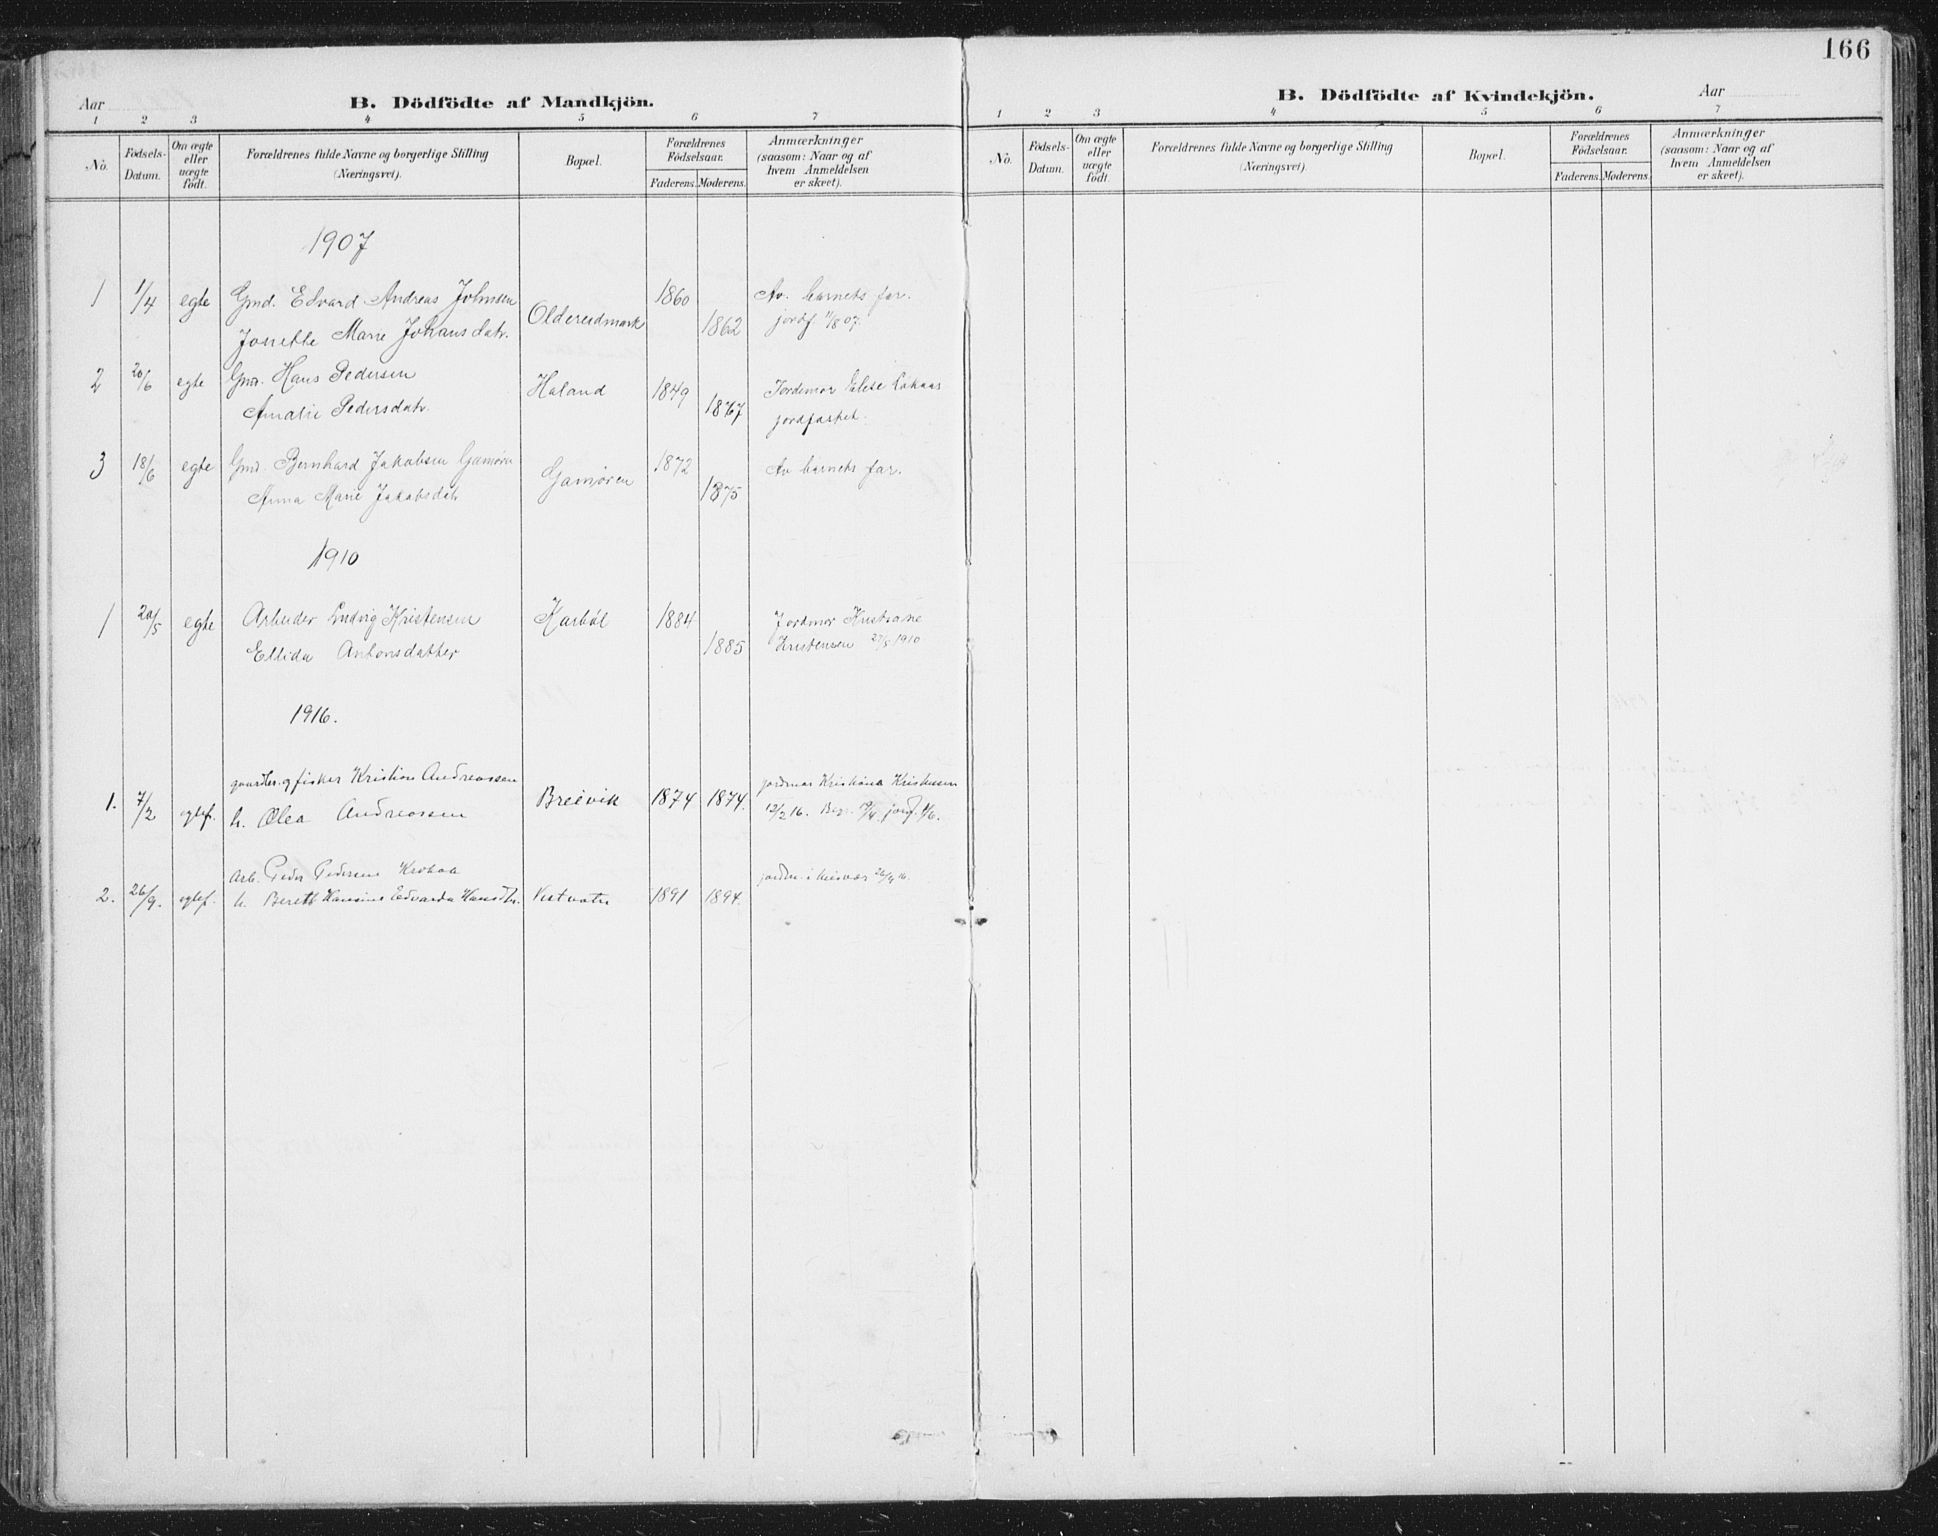 166
Aar
B. Dödfödte af Mandkjön.
1 2 3 4 5 6 7
No.
Födsels-Datum.
Om ægte eller uægte födt.
Forældrenes fulde Navne og borgerlige Stilling (Næringsvei).
Bopæl.
Forældrenes Födselsaar.
Faderens. Moderens.
Anmærkninger (saasom: Naar og af hvem Anmeldelsen er skeet).
1907
1 1/4 egte Gmd. Edvard Andreas Johnsen 1860 Av barnets far.
Josette Marie Johansdatr. Oldereidmark 1862 jordf. 11/8 07.
2 20/6 egte Gmd. Hans Pedersen Haland 1849 Jordemor
Amalie Pedersdatr. 1867 jordfæstet.
3 18/6 egte Gmd. Bernhard Jakobsen Gamøren 1872 Av barnets far.
Anna Marie Jakobsdatr Gamøren 1875
1910
1 20/5 egte Arbeider Ludvig Kristensen Karbøl 1884 Jordmor Kristiane
Ellida Antonsdatter 1885 Kristensen 27/5 1910
1916.
gaardbr. og fisker Kristian Andreassen jordmor Kristiane Kristensen
1. 7/2 egtef. h. Olea Andreassen Breivik 1874 1874. 12/2 16.
Arb. Peder Pedersen
2. 26/9. egtef. h. Berett Hansine Edvarda Hansdtr. Vestvatn 1891 1894.
B. Dödfödte af Kvindekjön.
Aar
1 2 3 4 5 6 7
No.
Födsels-Datum.
Om ægte eller uægte födt.
Forældrenes fulde Navne og borgerlige Stilling (Næringsvei).
Bopæl.
Forældrenes Födselsaar.
Faderens. Moderens.
Anmærkninger (saasom: Naar og af hvem Anmeldelsen er skeet).